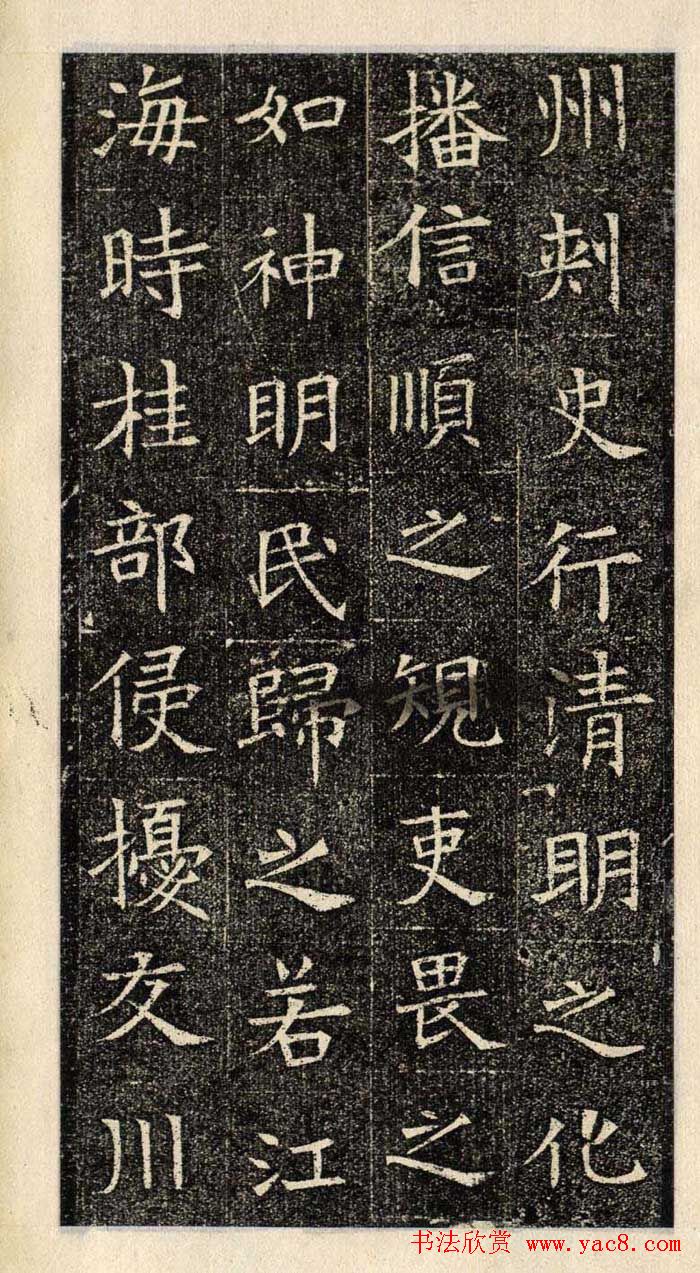 州刺史行清明之化
播信順之規吏畏之
如神明民歸之若江
海時桂部侵擾交川
书法欣赏 www.yac8.com